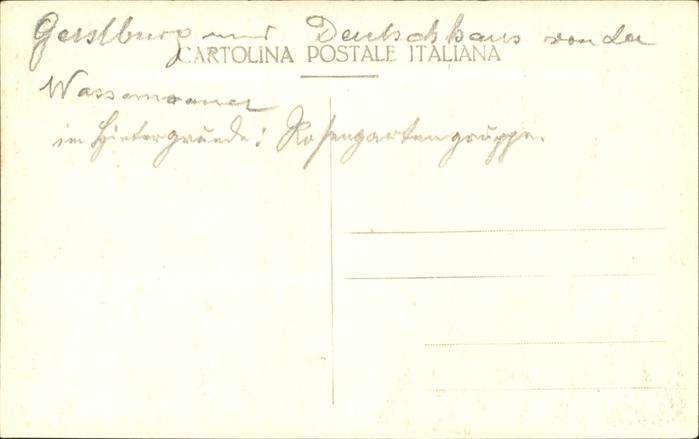 Gerstburg und Deutschhaus von der
CARTOLINA POSTALE ITALIANA
Wassermauer
im Hintergrunde: Rosengartengruppe.